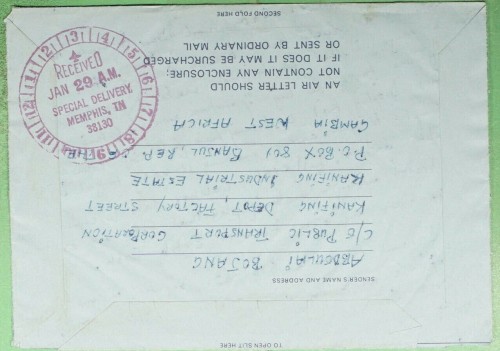 TO OPEN SLIT HERE
SENDER'S NAME AND ADDRESS
ABDOULIAI BOJANG
C/O PUBLIC TRANSPORT CORPORATION
KANIFING DEPOT, FACTORY STREET
KANIFING INDUSTRIAL ESTATE
P.O. BOX 801 BANSUL, REP. THE
GAMBIA WEST AFRICA
AN AIR LETTER SHOULD
NOT CONTAIN ANY ENCLOSURE;
IF IT DOES IT MAY BE SURCHARGED
OR SENT BY ORDINARY MAIL
SECOND FOLD HERE
12 1 2 3 4 5 6 7 8 9
RECEIVED
JAN 29 A.M.
SPECIAL DELIVERY
MEMPHIS, TN
38130